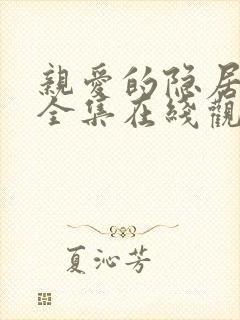 親愛的隐居
全集在綫觀
夏沁芳